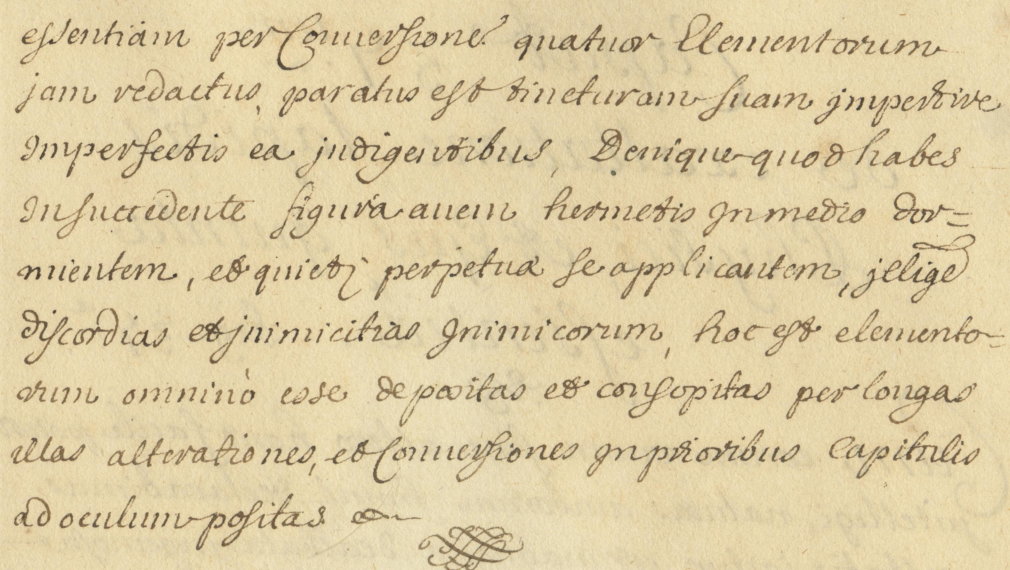 essentiam per Conversione quatuor Elementorum
jam redactus, paratus est tincturam suam jmpertire
Imperfectis ea jndigentibus, Denique quod habes
In succedente figura auem hermetis In medio dor=
mientem, et quieti perpetuæ se applicantem, jellige
discordias et jnimicitias Inimicorum, hoc est elemento=
rum omninò esse depositas et consopitas per longas
illas alterationes, et Conuersiones In prioribus Capitulis
ad oculum positas